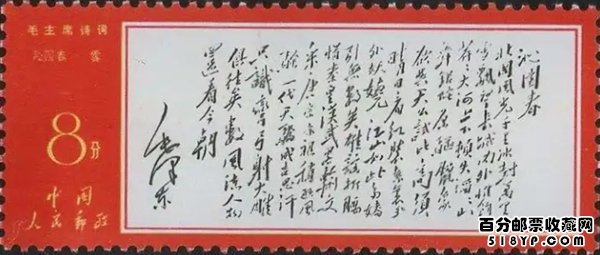 毛主席诗词
沁园春 雪
8分
中国
人民邮政
沁园春
北国风光千里冰封万里
雪飘望长城内外惟馀
莽莽大河上下顿失滔滔山
舞银蛇原驱腊象
欲与天公试比高须
晴日看红装素裹分
外妖娆江山如此多娇
引无数英雄竞折腰
惜秦皇汉武略输文
采唐宗宋祖稍逊风
骚一代天骄成吉思汗
只识弯弓射大雕
俱往矣数风流人物
还看今朝
毛泽东
百分邮票收藏网
518YP.com